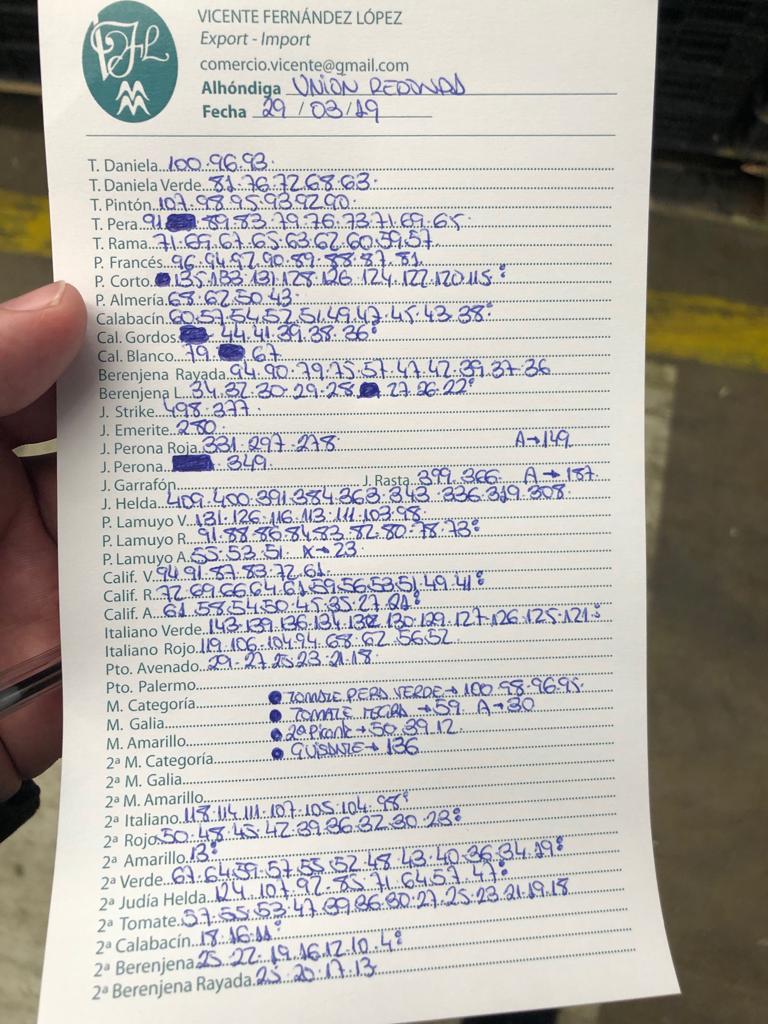 VICENTE FERNÁNDEZ LÓPEZ
Export - Import
comercio.vicente@gmail.com
Alhóndiga UNION REDONDAS
Fecha 29/03/19
T. Daniela 100·96·93·
T. Daniela Verde 81·76·72·68·63·
T. Pintón 107·98·95·93·92·90·
T. Pera 91 89·83·79·76·73·71·69·65·
T. Rama 71·69·67·65·63·62·60·59·57·
P. Francés 96·94·92·90·89·88·87·81·
P. Corto 135·133·131·128·126·124·122·120·115·
P. Almería 68·62·50·43·
Calabacín 60·57·54·52·51·49·47·45·43·38·
Cal. Gordos 44·41·39·38·36·
Cal. Blanco 79· 67
Berenjena Rayada 94·90·79·75·57·47·42·39·37·36
Berenjena L. 34·32·30·29·28 27·26·22·
J. Strike 498·377·
J. Emerite 280·
J. Perona Roja 331·297·278· A→149
J. Perona 349·
J. Garrafón J. Rasta 399·366· A→187
J. Helda 409·400·391·384·363·343·336·319·308
P. Lamuyo V. 131·126·116·113·111·103·98·
P. Lamuyo R. 91·88·86·84·83·82·80·78·73·
P. Lamuyo A. 55·53·51· X→23·
Calif. V. 94·91·87·83·72·61·
Calif. R. 72·69·66·64·61·59·56·53·51·49·41·
Calif. A. 61·58·54·50·45·35·27·21·
Italiano Verde 143·139·136·134·132·130·129·127·126·125·121·
Italiano Rojo 119·106·104·94·68·62·56·52·
Pto. Avenado 29·27·25·23·21·18·
Pto. Palermo
M. Categoría • TOMATE PERA VERDE→100·98·96·95·
M. Galia • TOMATE →59· A→30
M. Amarillo • 2ª Picante→50·39·12·
2ª M. Categoría • GUISANTE→136
2ª M. Galia
2ª M. Amarillo
2ª Italiano 118·114·111·107·105·104·98·
2ª Rojo 50·48·45·42·39·36·32·30·23·
2ª Amarillo 13·
2ª Verde 67·64·59·57·55·52·48·43·40·36·34·19·
2ª Judía Helda 124·107·92·85·71·64·57·47·
2ª Tomate 57·55·53·47·39·36·30·27·25·23·21·19·18
2ª Calabacín 18·16·11·
2ª Berenjena 25·22·19·16·12·10·4·
2ª Berenjena Rayada 25·20·17·13·